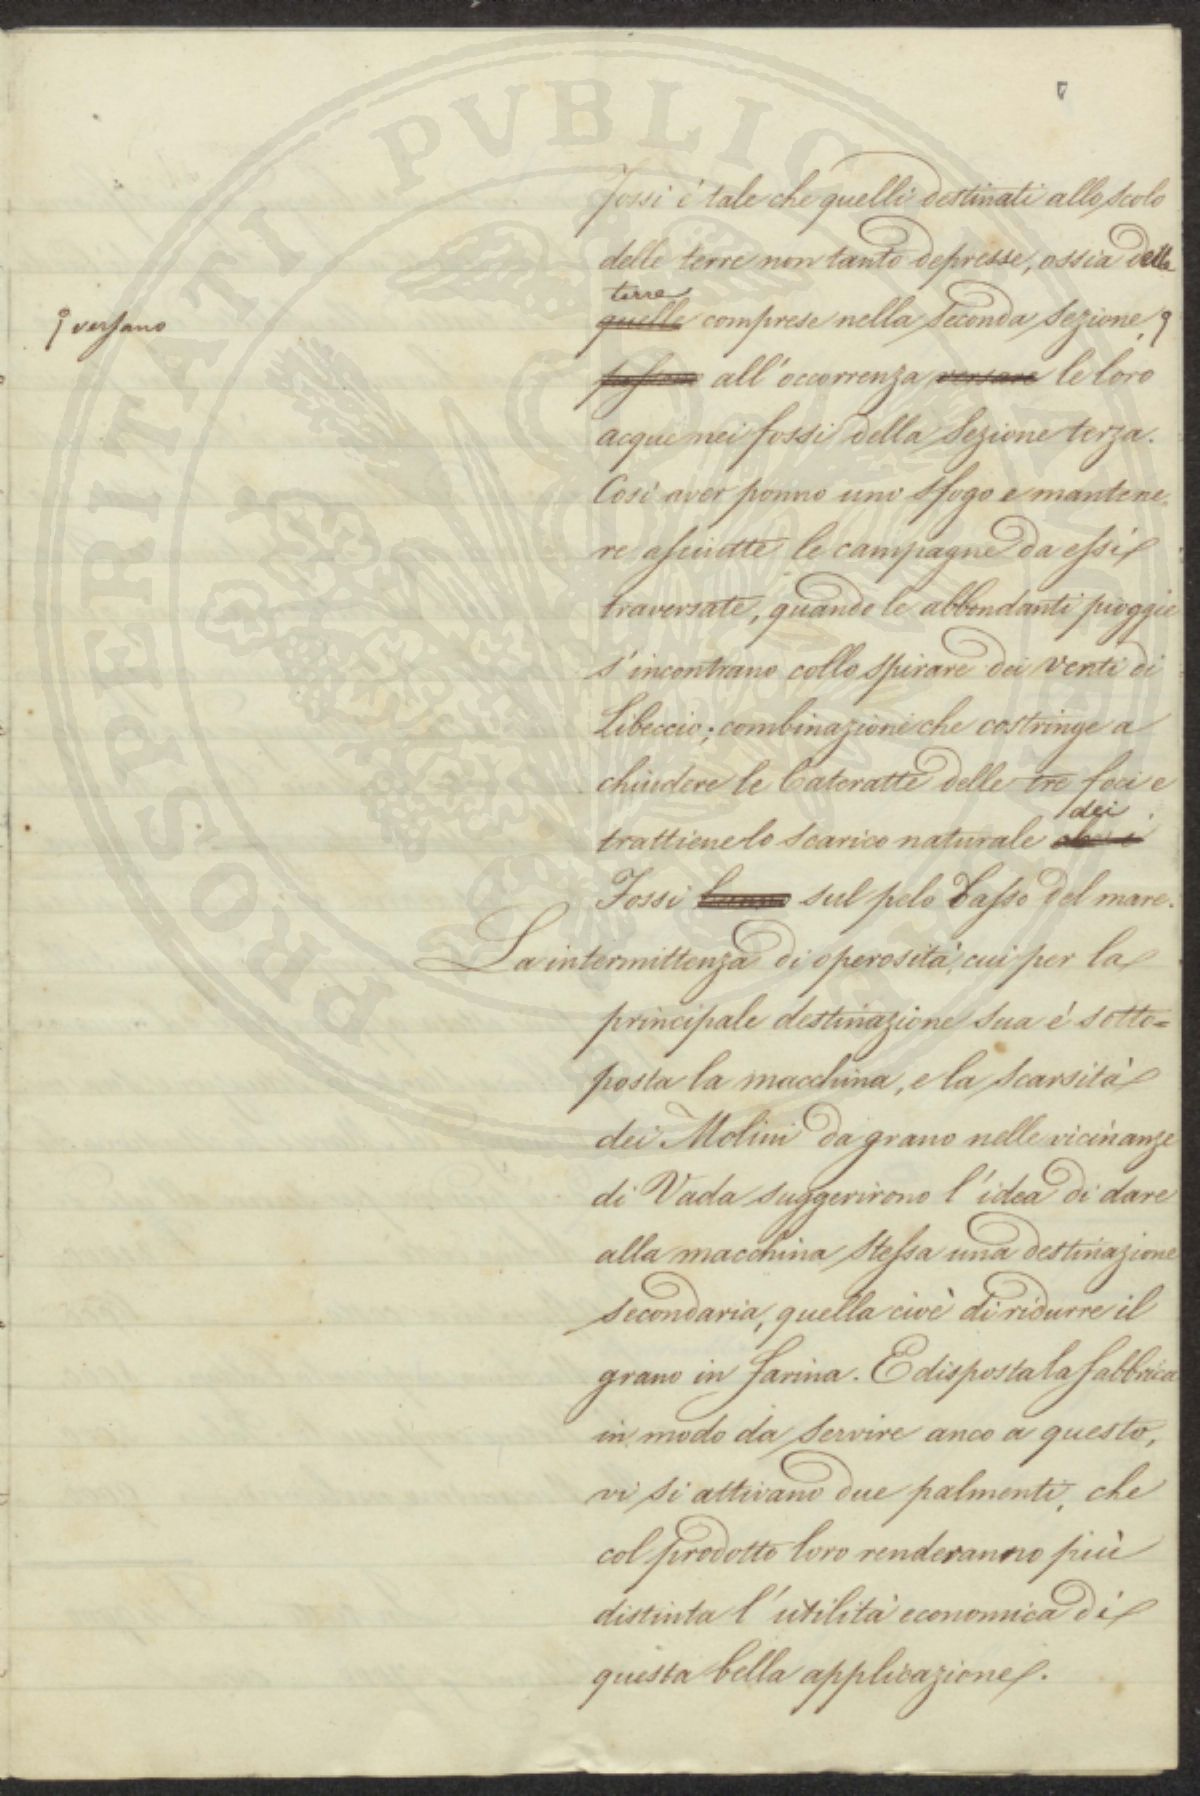 7
PROSPERITATI PVBLIC
Fossi è tale che quelli destinati allo scolo
delle terre non tanto depresse, ossia delle
terre
quelle comprese nella Seconda Sezione,
versano
possono all'occorrenza versare le loro
acque nei fossi della Sezione terza.
Così aver ponno uno sfogo e mantene-
re asciutte le campagne da essi
traversate, quando le abbondanti pioggie
s'incontrano collo spirare dei venti di
Libeccio; combinazione che costringe a
chiudere le Cateratte delle tre foci e
dei
trattiene lo scarico naturale
Fossi sul pelo basso del mare.
La intermittenza di operosità, cui per la
principale destinazione sua è sotto=
posta la macchina, e la scarsità
dei Molini da grano nelle vicinanze
di Vada suggerirono l'idea di dare
alla macchina stessa una destinazione
secondaria, quella cioè di ridurre il
grano in farina. E disposta la fabbrica
in modo da servire anco a questo,
vi si attivano due palmenti, che
col prodotto loro renderanno più
distinta l'utilità economica di
questa bella applicazione.